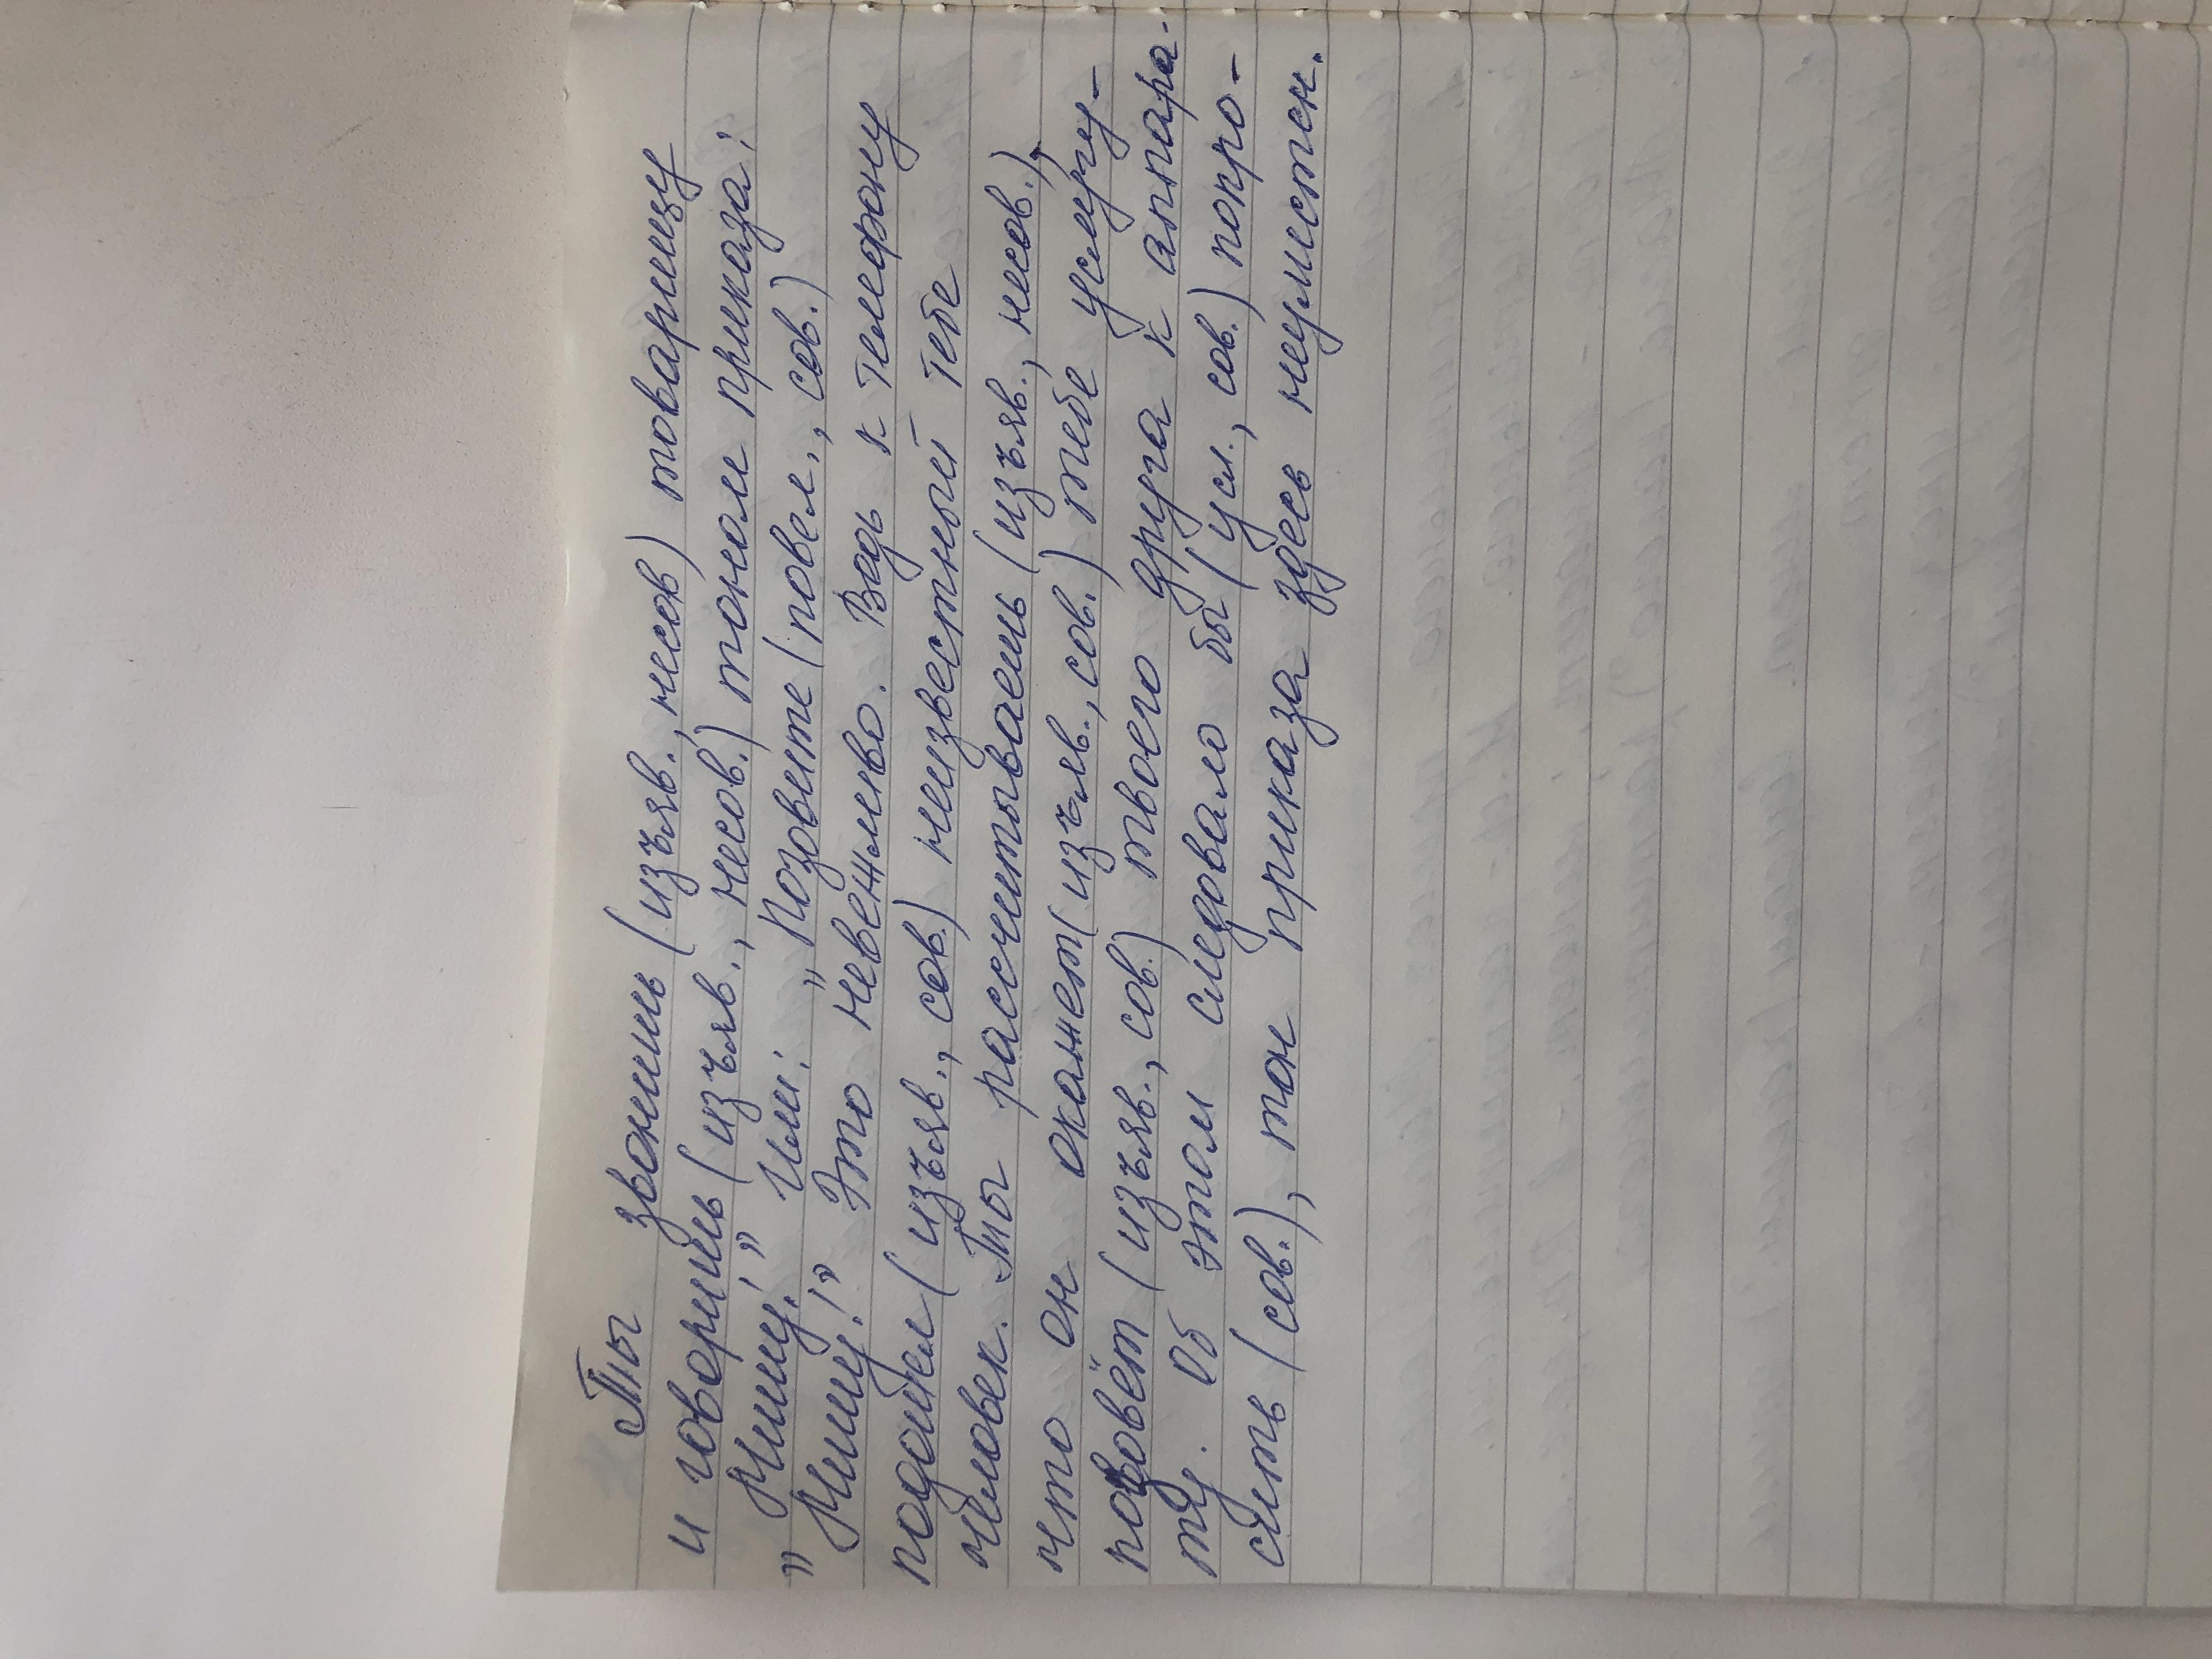 Ты звонишь (изъяв., несов) товарищу
и говоришь (изъяв., несов.) тоном приказа:
„Мишу!" Или: „Позовите (повел., сов.)
„Мишу!" Это невежливо. Ведь к телефону
подошёл (изъяв., сов.) неизвестный тебе
человек. Ты рассчитываешь (изъяв., несов.),
что он окажет (изъяв., сов.) тебе услугу-
позовёт (изъяв., сов.) твоего друга к аппара-
ту. Об этом следовало бы (усл., сов.) попро-
сить (сов.), тон приказа здесь неуместен.